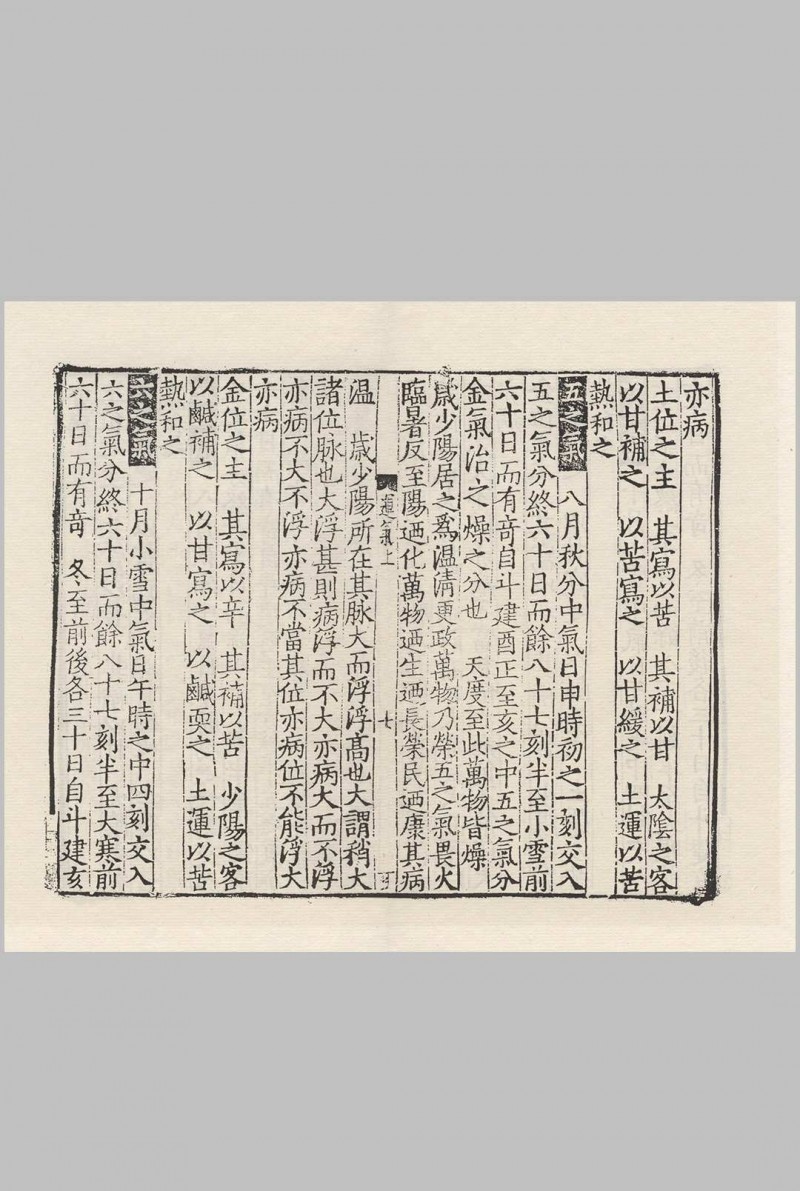 亦病
土位之主　其寫以苦　其補以甘　太陰之客
以甘補之　以苦寫之　以甘緩之　土運以苦
熱和之
五之氣　八月秋分中氣日申時初之一刻交入
五之氣分終六十日而餘八十七刻半至小雪前
六十日而有竒自斗建酉正至亥之中五之氣分
金氣治之燥之分也　天度至此萬物皆燥
歲少陽居之爲温清更政萬物乃榮五之氣畏火
臨暑反至陽迺化萬物迺生迺長榮民迺康其病
運氣上　七
温　歲少陽所在其脉大而浮浮髙也大謂稍大
諸位脉也大浮甚則病浮而不大亦病大而不浮
亦病不大不浮亦病不當其位亦病位不能浮大
亦病
金位之主　其寫以辛　其補以苦　少陽之客
以鹹補之　以甘寫之　以鹹耎之　土運以苦
熱和之
六之氣　十月小雪中氣日午時之中四刻交入
六之氣分終六十日而餘八十七刻半至大寒前
六十日而有竒　冬至前後各三十日自斗建亥